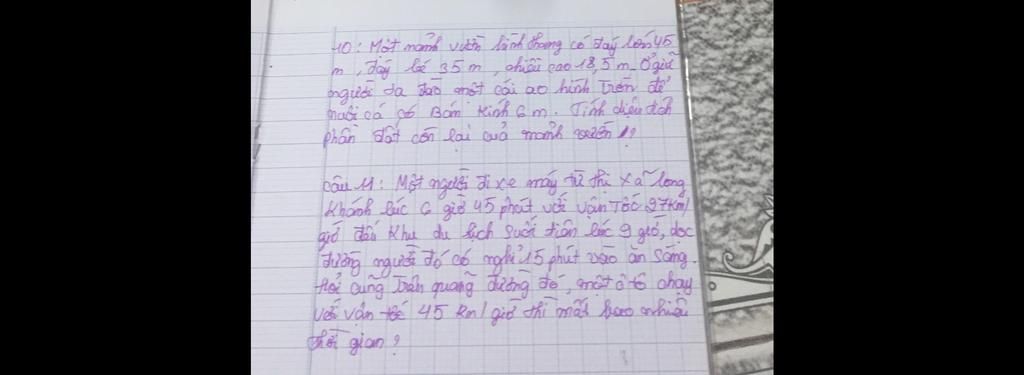 10: Một mảnh vườn hình thang có đáy lớn 45
m, đáy bé 35 m, chiều cao 18,5 m. Ở giữ
người ta đào một cái ao hình tròn để
nuôi cá có Bán Kính 6 m. Tính diện tích
phần đất còn lại cuả mảnh vườn ?
Câu 11: Một người đi xe máy từ thị xã long
Khánh lúc 6 giờ 45 phát với vận Tốc 27Km/
giờ đến Khu du lịch Suối tiên lúc 9 giờ, dọc
đường người đó có nghỉ 15 phút vào ăn sáng.
Hỏi cũng trên quãng đường đó, một ô tô chạy
với vận tốc 45 Km/giờ thì mất bao nhiêu
thời gian ?